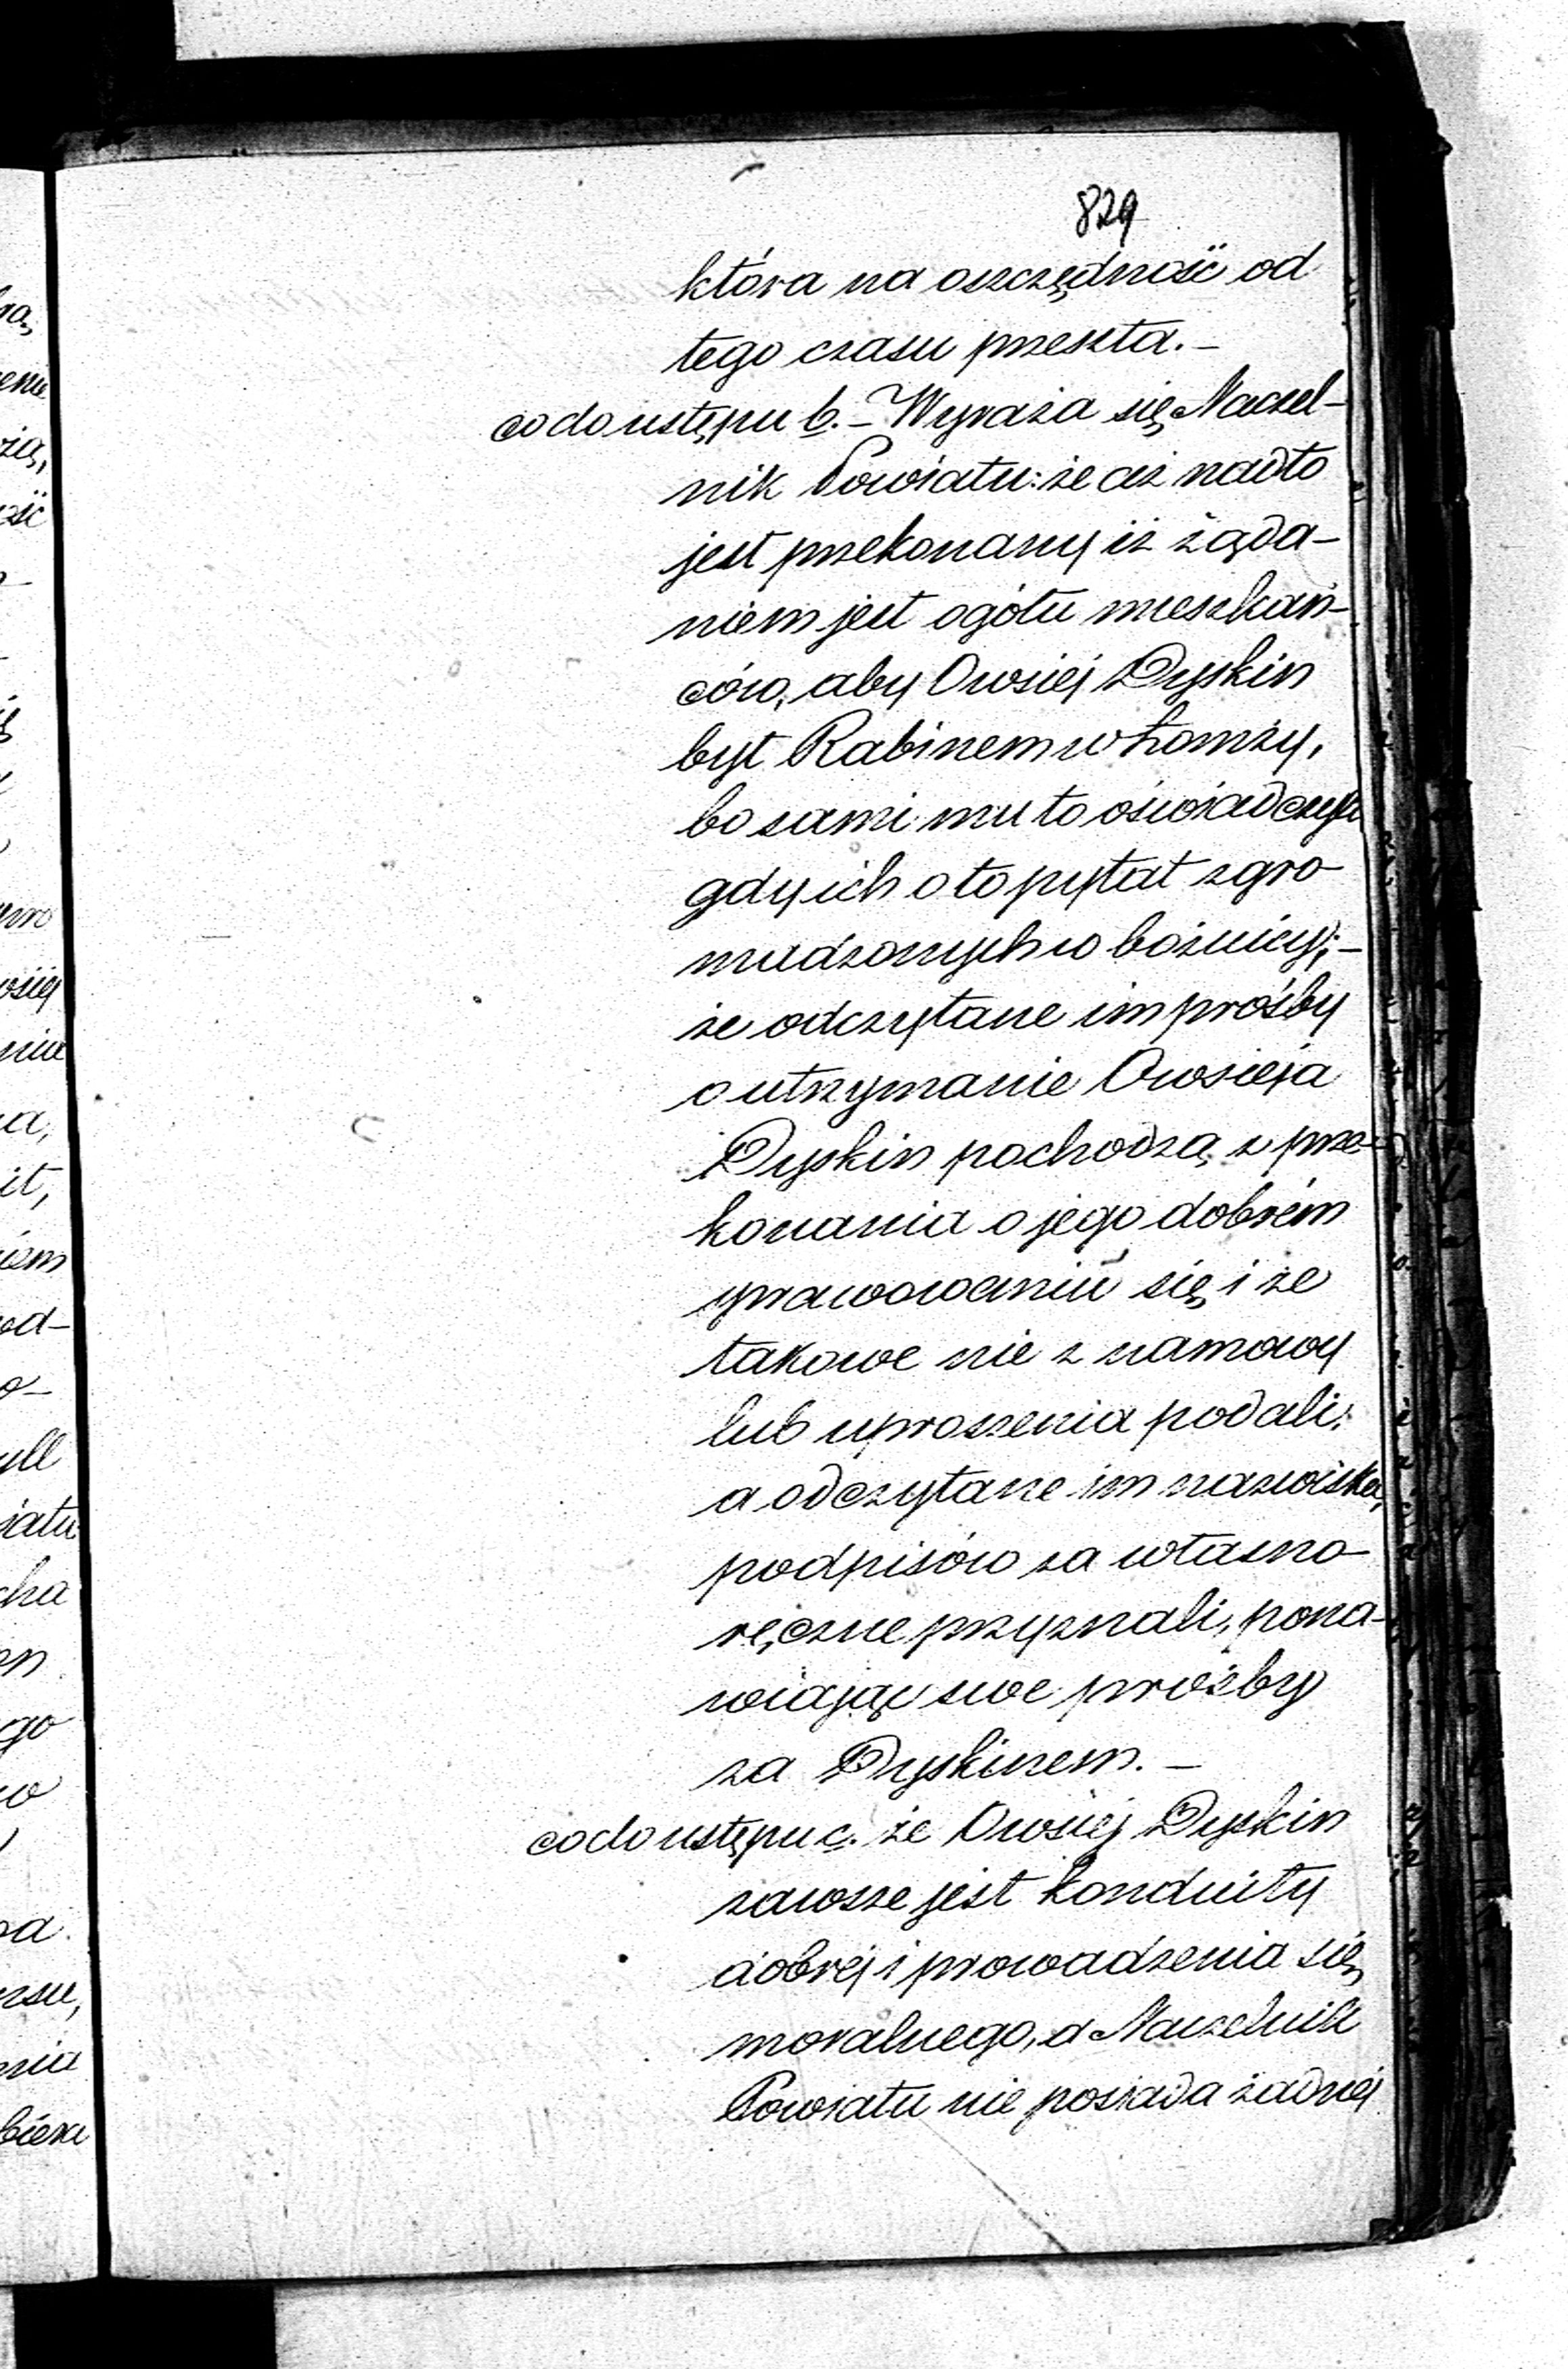 829
która na oszczędność od
tego czasu przeszła. –
co do ustępu b. – Wyraża się Naczel-
nik Powiatu: że aż nadto
jest przekonany iż żąda-
niem jest ogółu mieszkań-
ców, aby Owsiej Dyskin
był Rabinem w Łomży,
bo sami mu to oświadczyli
gdy ich o to pytał zgro-
madzonych w bożnicy; –
że odczytane im prośby
o utrzymanie Owsieja
Dyskin pochodzą z prze-
konania o jego dobrém
sprawowaniu się i że
takowe nie z namowy
lub uproszenia podali;
a odczytane im nazwiska,
podpisów za własno-
ręczne przyznali, pona-
wiając swe prośby
za Dyskinem. –
co do ustępu c. że Owsiej Dyskin
zawsze jest konduity
dobrej i prowadzenia się
moralnego, a Naczelnik
Powiatu nie posiada żadnej